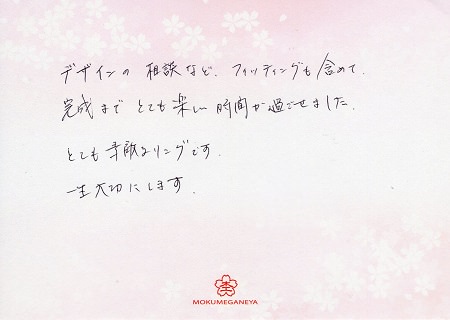 デザインの 相談など、フィッティングも含めて、
完成まで とても楽しい時間が過ごせました。
とても素敵なリングです。
一生大切にします。
MOKUMEGANEYA